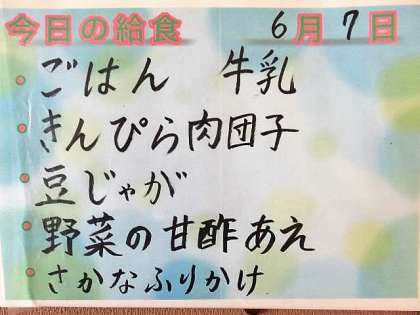 今日の給食 6月7日
ごはん 牛乳
きんぴら肉団子
豆じゃが
野菜の甘酢あえ
さかなふりかけ